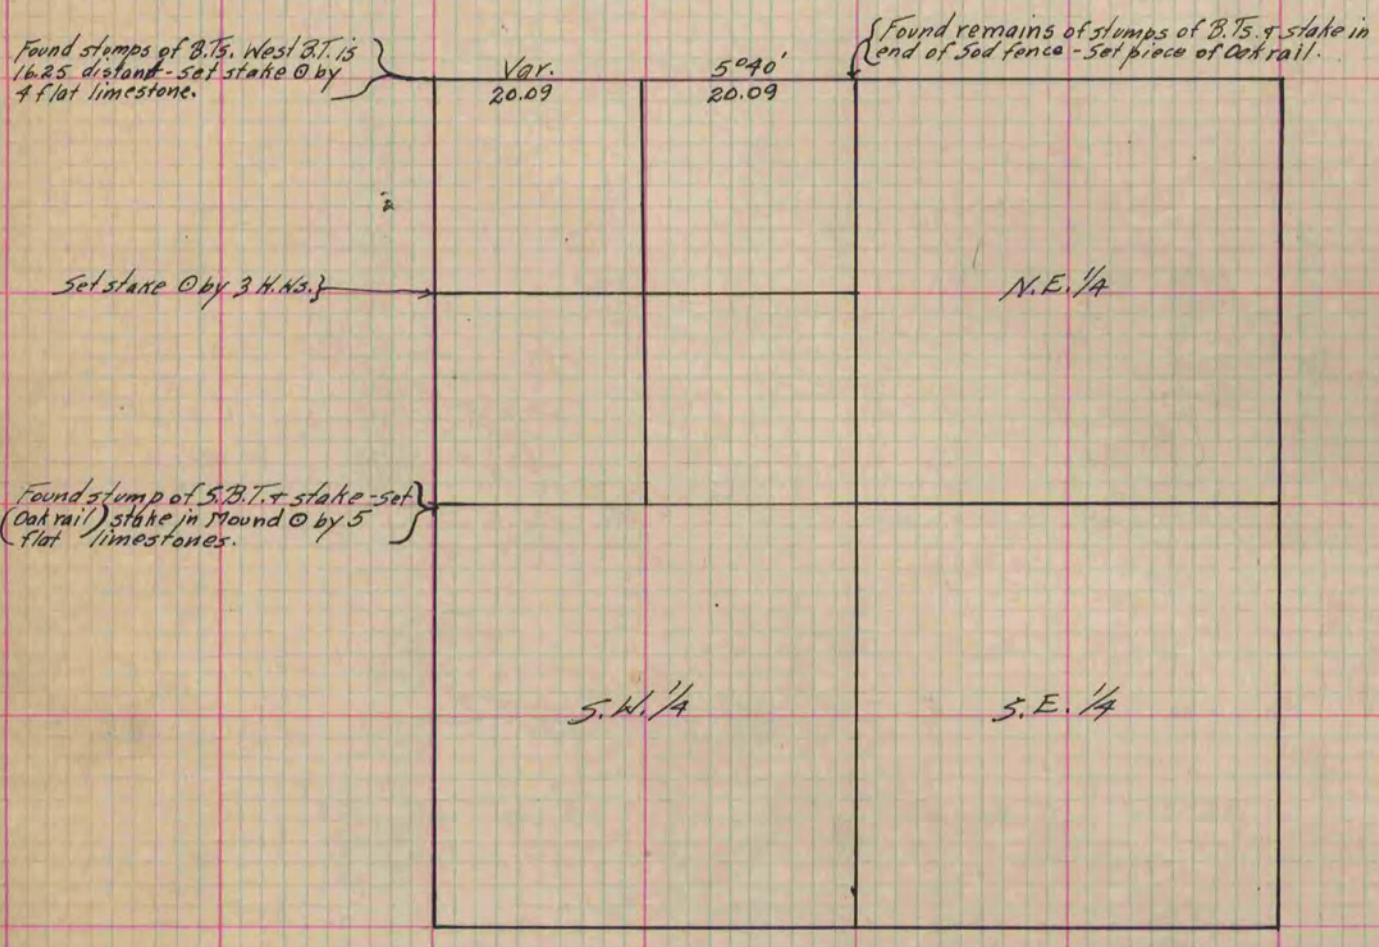 Found stumps of B.Ts. West B.T. is
16.25 distant - set stake ⊙ by
4 flat limestone.
Var. 5°40'
20.09 20.09
{Found remains of stumps of B.Ts. & stake in
end of Sod fence - Set piece of Oak rail.
Set stake ⊙ by 3 H.Hs.}
N.E. 1/4
Found stump of S.B.T. & stake - set
(Oak rail) stake in Mound ⊙ by 5
flat limestones.
S.W. 1/4
S.E. 1/4